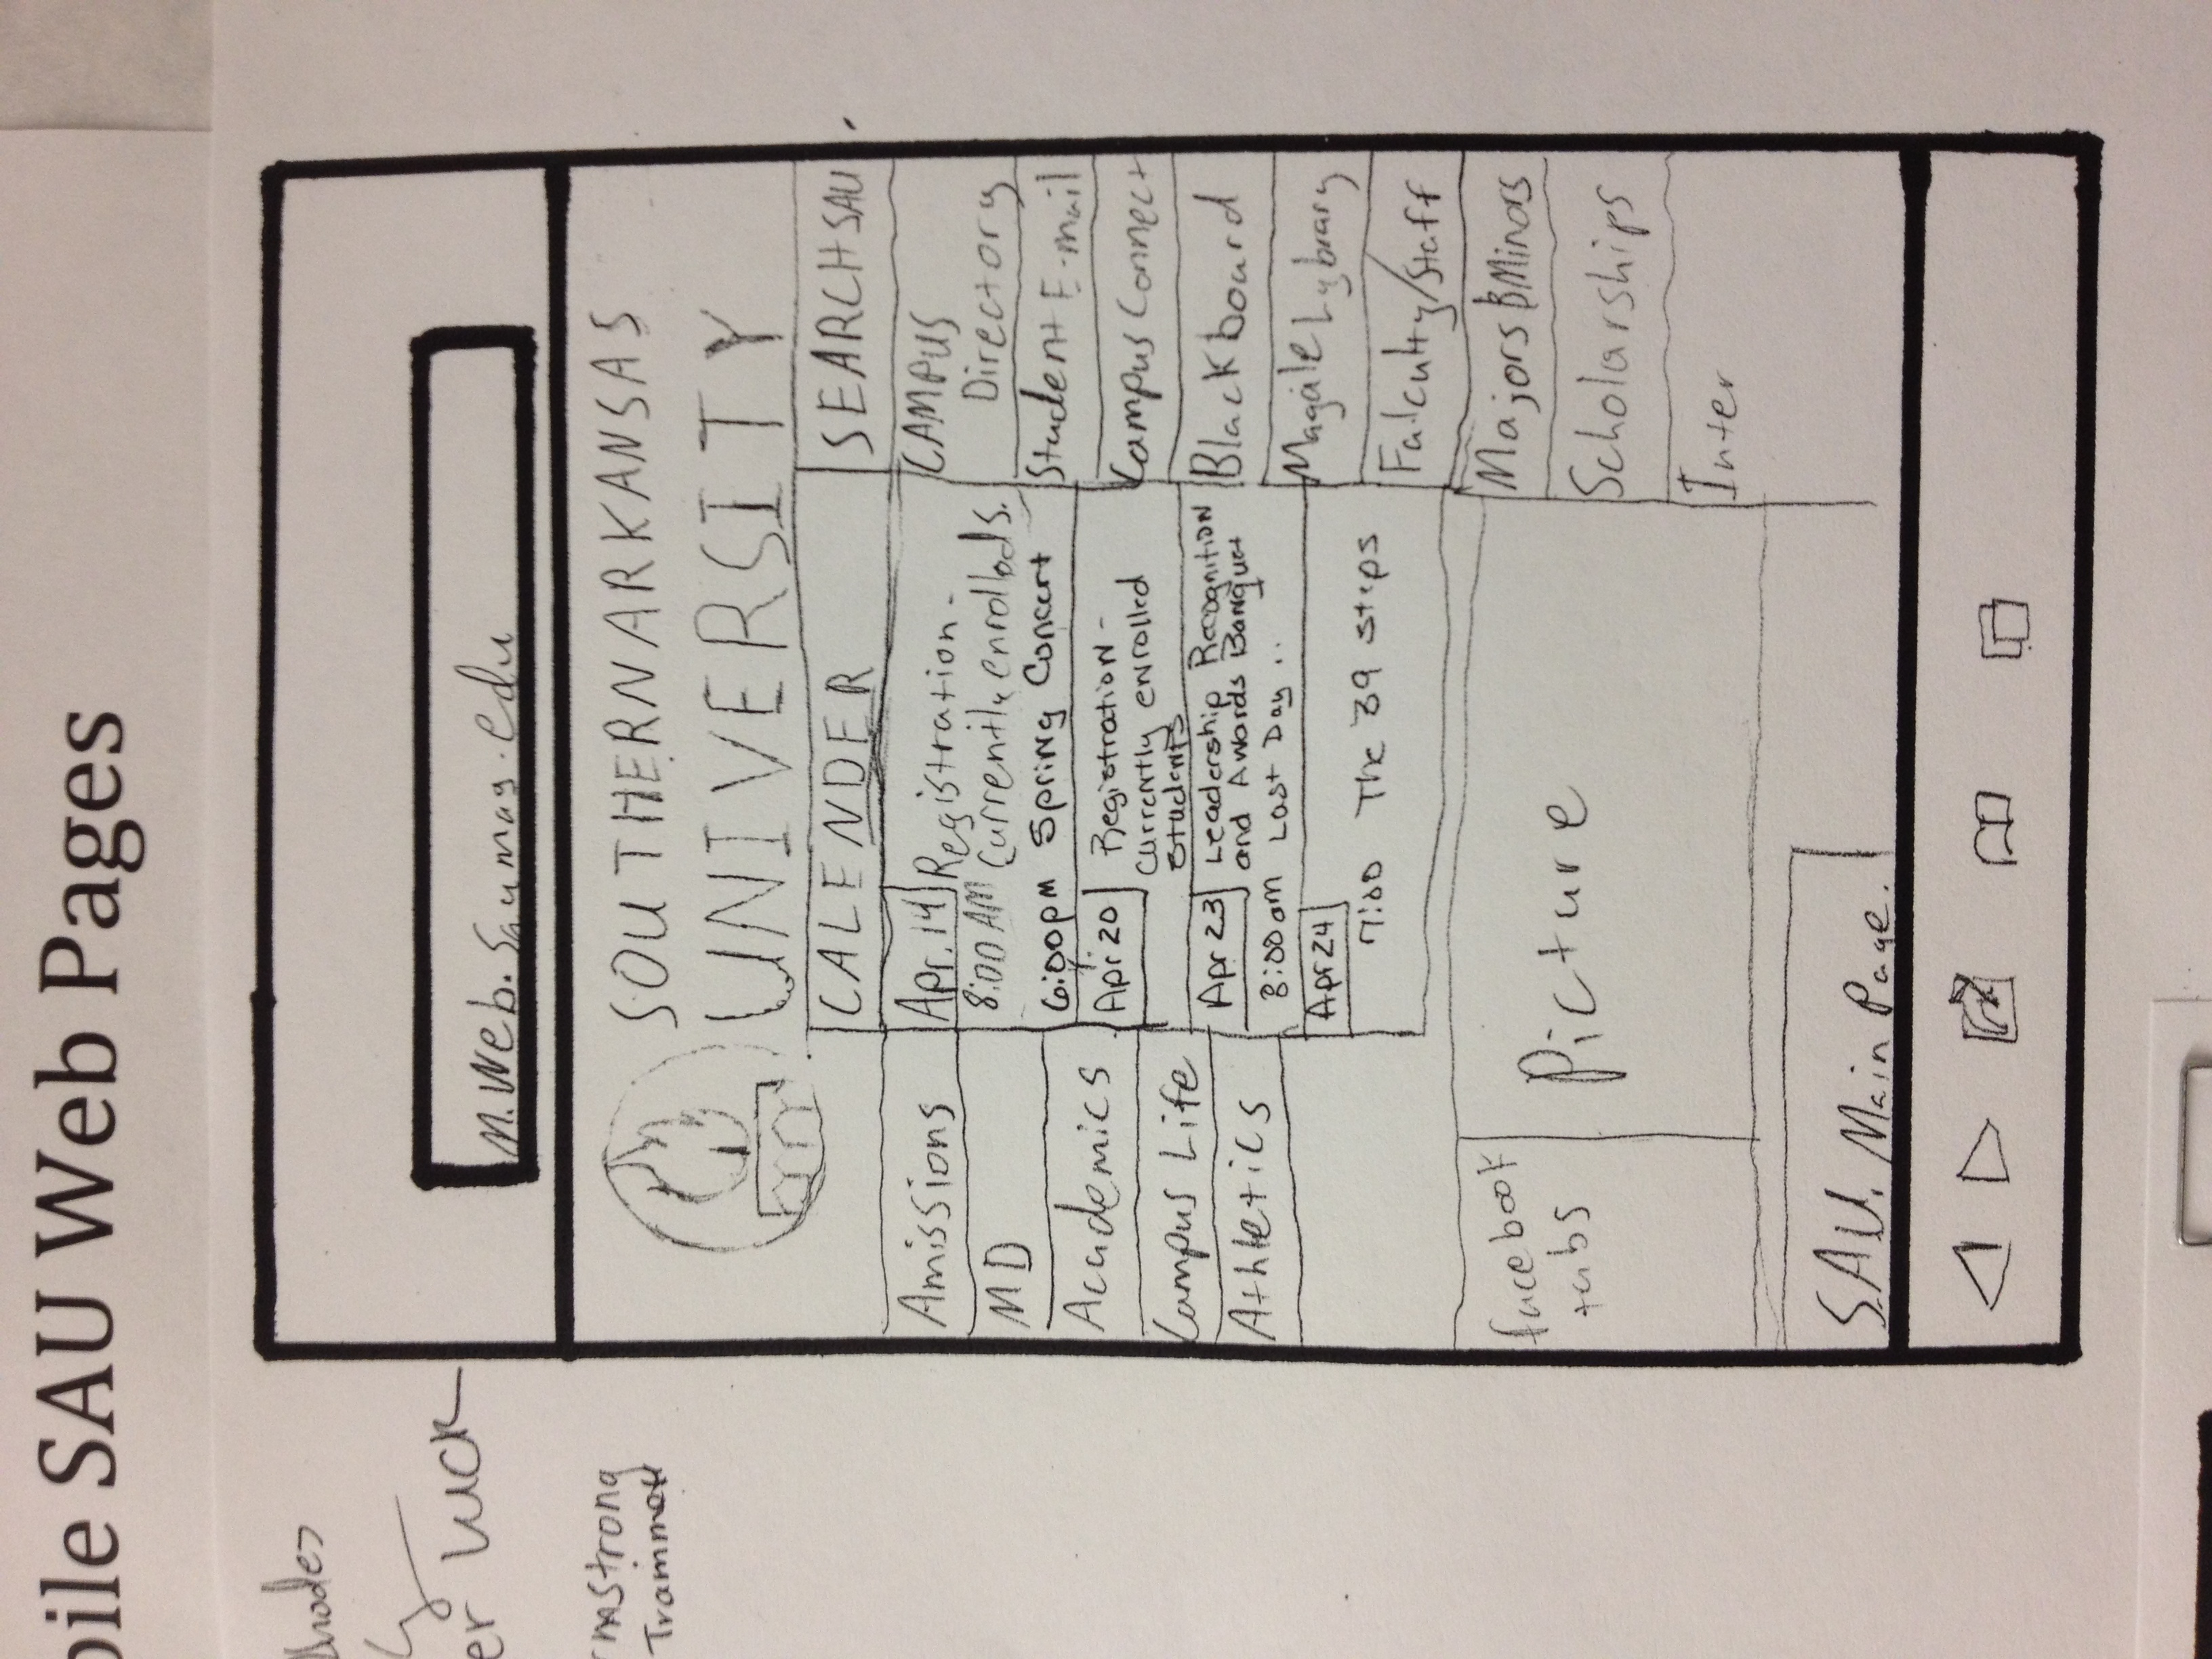 bile SAU Web Pages
er Tuck
mstrong
Trammell
m.web.saumag.edu
SOUTHERN ARKANSAS
UNIVERSITY
CALENDER
SEARCH SAU
Apr. 14 Registration -
8:00 AM Currently enrolled S.
6:00pm Spring Concert
Apr 20 Registration -
Currently enrolled
students
Apr 23 Leadership Recognition
and Awords Banquet
8:00am Last Day ..
Apr 24
7:00 The 39 steps
Amissions
MD
Academics
Campus Life
Athletics
CAMPUS
Directory
Student E-mail
Campus Connect
Blackboard
Magale Lybrary
Falculty/Staff
Majors & Minors
Scholarships
Inter
facebook
tabs
Picture
SAU. Main Page.